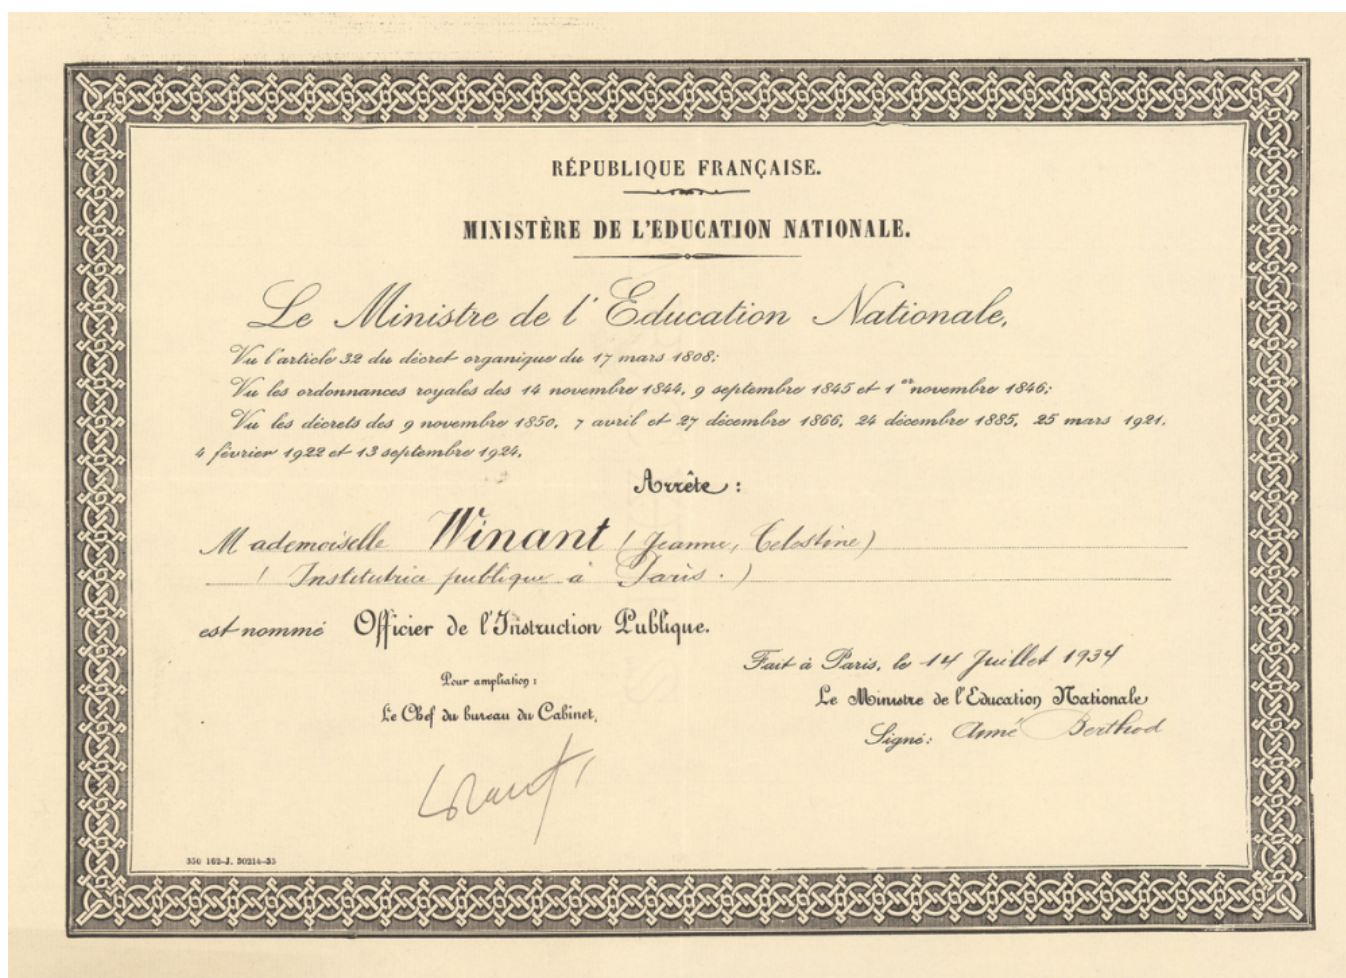 RÉPUBLIQUE FRANÇAISE.
MINISTÈRE DE L'ÉDUCATION NATIONALE.
Le Ministre de l'Education Nationale,
Vu l'article 32 du décret organique du 17 mars 1808;
Vu les ordonnances royales des 14 novembre 1844, 9 septembre 1845 et 1er novembre 1846;
Vu les décrets des 9 novembre 1850, 7 avril et 27 décembre 1866, 24 décembre 1885, 25 mars 1921,
4 février 1922 et 13 septembre 1924,
Arrête :
Mademoiselle Winant (Jeanne, Celestine)
(Institutrice publique à Paris.)
est nommé Officier de l'Instruction Publique.
Fait à Paris, le 14 Juillet 1934
Pour ampliation :
Le Ministre de l'Education Nationale
Le Chef du bureau du Cabinet,
Signé: Aimé Berthod
350 162-J. 50214-33